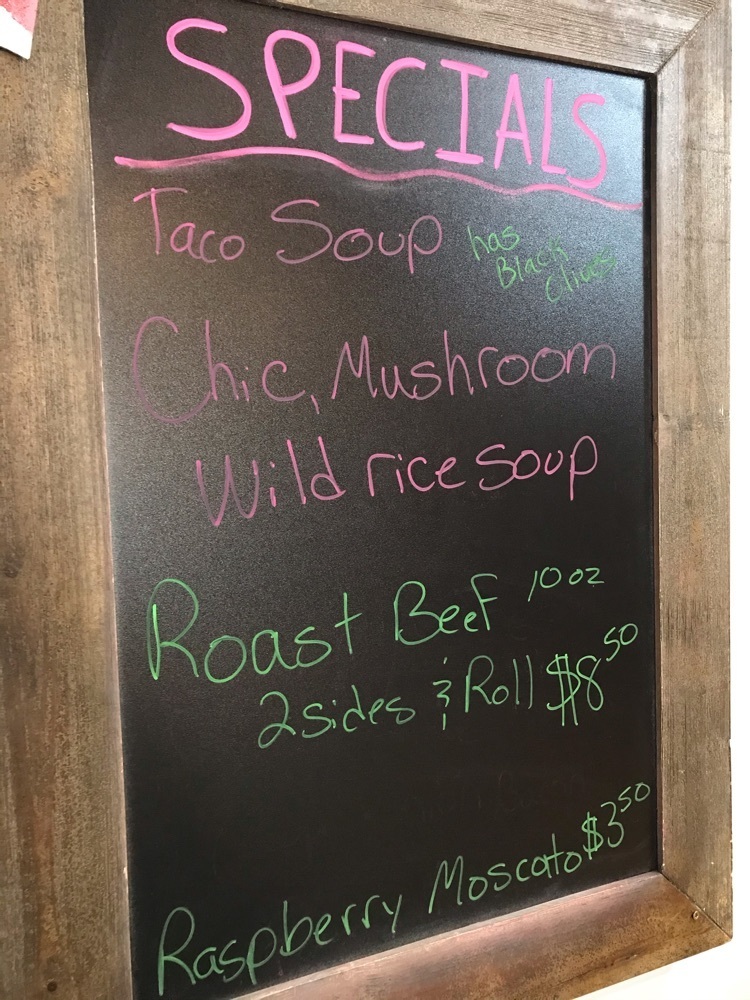 SPECIALS
Taco Soup has
Black
Olives
Chic, Mushroom
Wild rice soup
Roast Beef 10 oz
2 sides & Roll $8.50
Raspberry Moscato $3.50